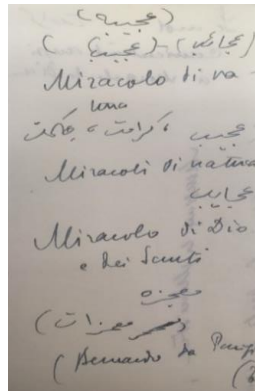 (عجيبه)
(عجائب) - (عجيب)
Miracolo di na
tura
عجيب ، كرامت ،
Miracoli di natura
عجايب
Miracolo di Dio
e dei Santi
معجزه
(معجزات)
(Bernardo da Parigi